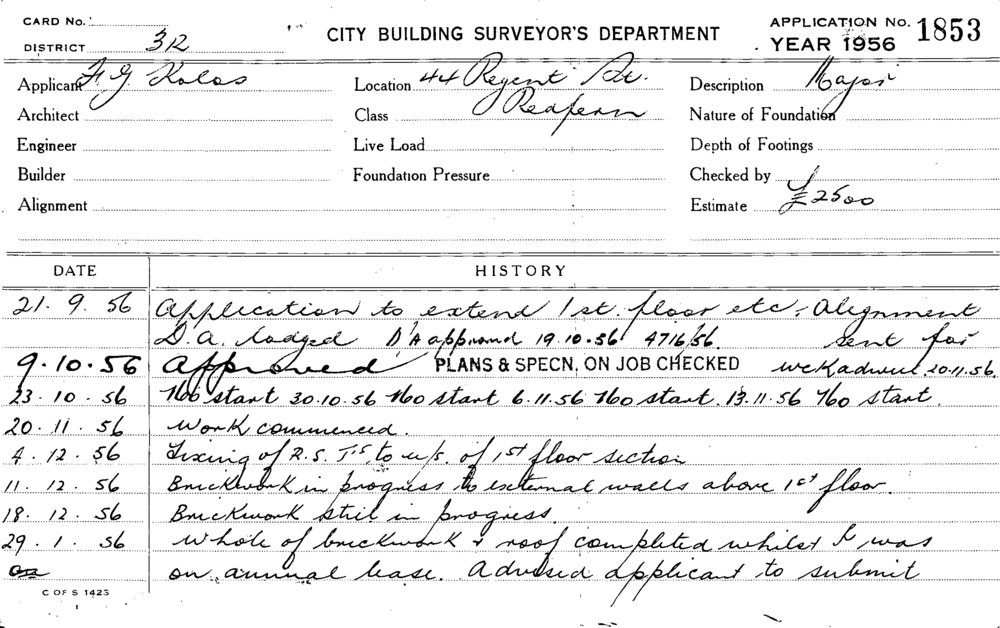 CARD No.
DISTRICT 3R
CITY BUILDING SURVEYOR'S DEPARTMENT
APPLICATION No. 1853
YEAR 1956
Applicant F. G. Kolos
Location 44 Regent St.
Description Major
Architect
Class Redfern
Nature of Foundation
Engineer
Live Load
Depth of Footings
Builder
Foundation Pressure
Checked by
Alignment
Estimate £2500
DATE HISTORY
21. 9. 56 Application to extend 1st. floor etc. Alignment
D.A. lodged D/A approved 19.10.56 4716/56. sent for
9.10.56 Approved PLANS & SPECN. ON JOB CHECKED 20.11.56.
23. 10. 56 No start 30.10.56 No start 6.11.56 No start. 13.11.56 No start.
20. 11. 56 Work commenced.
4. 12. 56 Fixing of R.S.Js to u/s. of 1st floor section
11. 12. 56 Brickwork in progress to external walls above 1st floor.
18. 12. 56 Brickwork still in progress.
29. 1. 56 Whole of brickwork & roof completed whilst I was
on annual lease. Advised applicant to submit
C OF S 1423